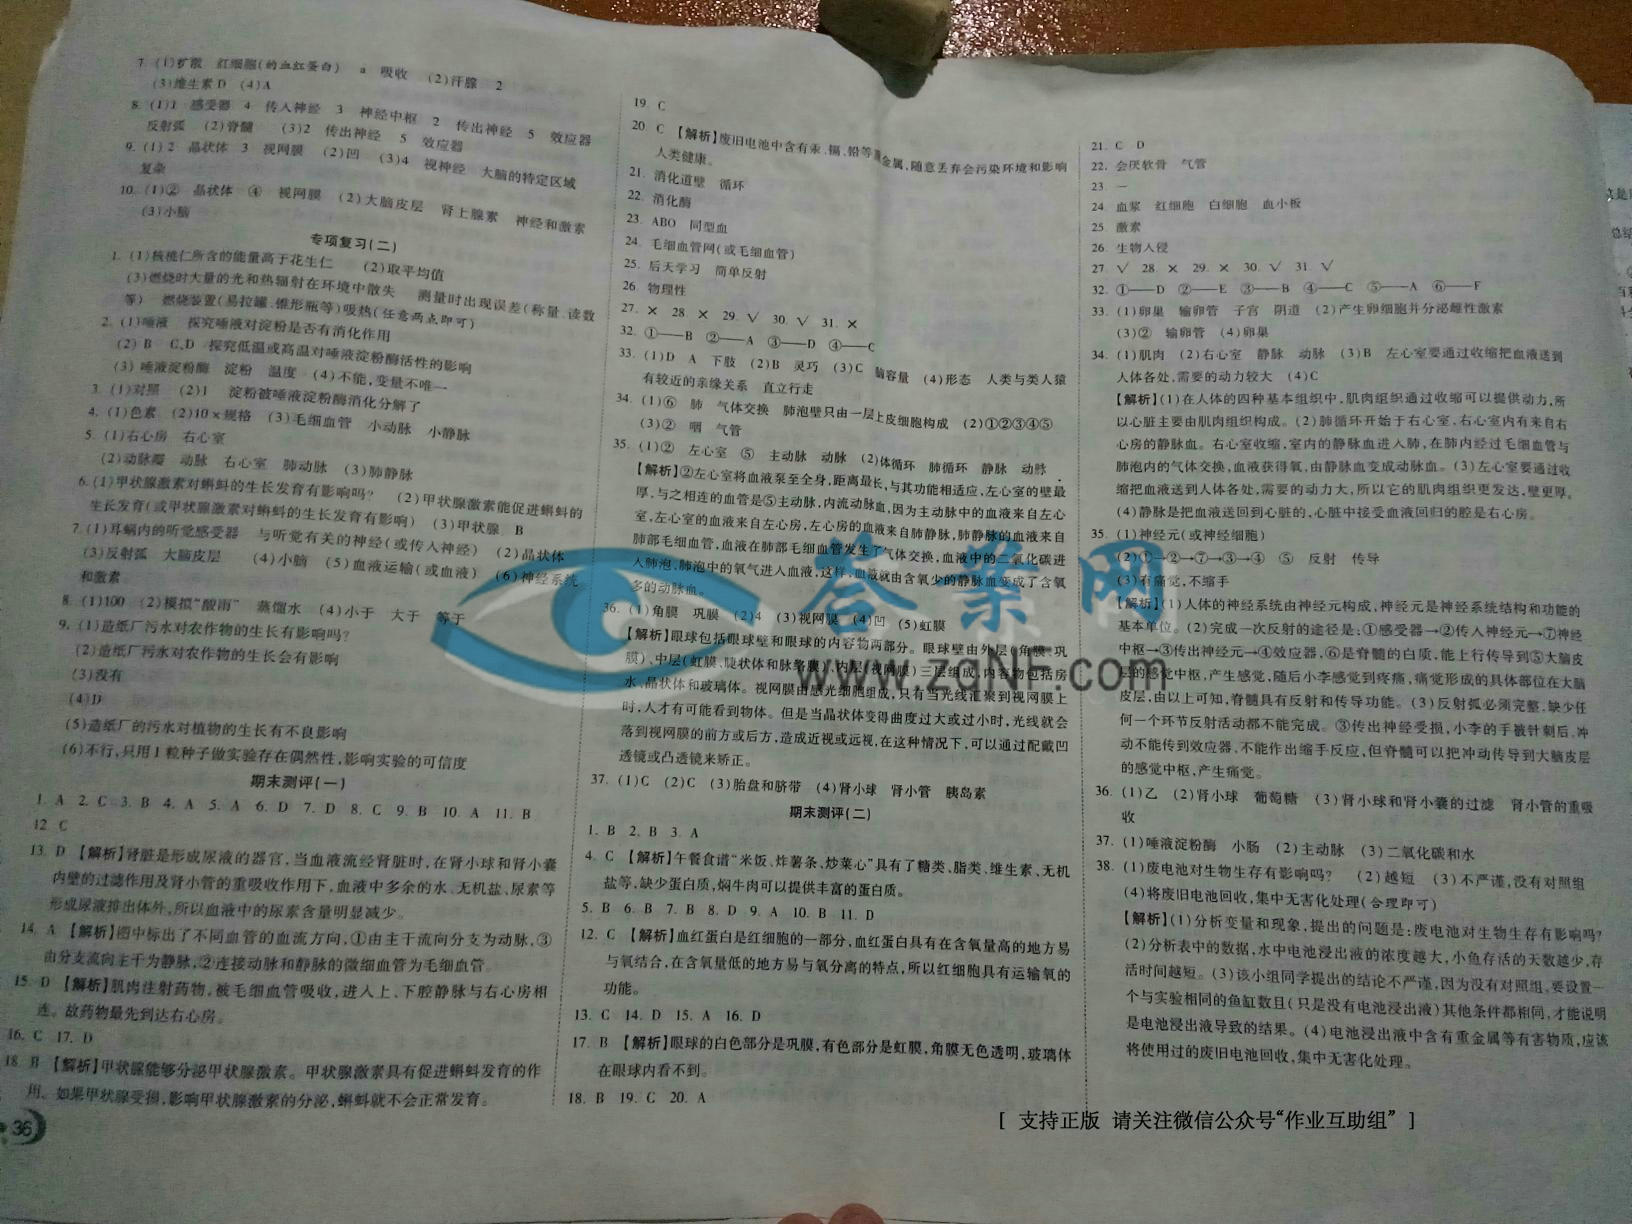 7. (1)扩散 红细胞(的血红蛋白) a 吸收 (2)汗腺 2
(3)维生素D (4)A
8. (1)1 感受器 4 传入神经 3 神经中枢 2 传出神经 5 效应器
反射弧 (2)脊髓 (3)2 传出神经 5 效应器
9. (1)2 晶状体 3 视网膜 (2)凹 (3)4 视神经 大脑的特定区域
复杂
10. (1)② 晶状体 ④ 视网膜 (2)大脑皮层 肾上腺素 神经和激素
(3)小脑
专项复习(二)
1. (1)核桃仁所含的能量高于花生仁 (2)取平均值
(3)燃烧时大量的光和热辐射在环境中散失 测量时出现误差(称量、读数
等) 燃烧装置(易拉罐、锥形瓶等)吸热(任意两点即可)
2. (1)唾液 探究唾液对淀粉是否有消化作用
(2) B C、D 探究低温或高温对唾液淀粉酶活性的影响
(3) 唾液淀粉酶 淀粉 温度 (4)不能,变量不唯一
3. (1)对照 (2)1 淀粉被唾液淀粉酶消化分解了
4. (1)色素 (2)10×规格 (3)毛细血管 小动脉 小静脉
5. (1)右心房 右心室
(2)动脉瓣 动脉 右心室 肺动脉 (3)肺静脉
6. (1)甲状腺激素对蝌蚪的生长发育有影响吗? (2)甲状腺激素能促进蝌蚪的
生长发育(或甲状腺激素对蝌蚪的生长发育有影响) (3)甲状腺 B
7. (1)耳蜗内的听觉感受器 与听觉有关的神经(或传入神经) (2)晶状体
(3)反射弧 大脑皮层 (4)小脑 (5)血液运输(或血液) (6)神经系统
和激素
8. (1)100 (2)模拟“酸雨” 蒸馏水 (4)小于 大于 等于
9. (1)造纸厂污水对农作物的生长有影响吗?
(2)造纸厂污水对农作物的生长会有影响
(3)没有
(4)D
(5)造纸厂的污水对植物的生长有不良影响
(6)不行,只用1粒种子做实验存在偶然性,影响实验的可信度
期末测评(一)
1. A 2. C 3. B 4. A 5. A 6. D 7. D 8. C 9. B 10. A 11. B
12 C
13. D 【解析】肾脏是形成尿液的器官,当血液流经肾脏时,在肾小球和肾小囊
内壁的过滤作用及肾小管的重吸收作用下,血液中多余的水、无机盐、尿素等
形成尿液排出体外,所以血液中的尿素含量明显减少。
14. A 【解析】图中标出了不同血管的血流方向,①由主干流向分支为动脉,③
由分支流向主干为静脉,②连接动脉和静脉的微细血管为毛细血管。
15. D 【解析】肌肉注射药物,被毛细血管吸收,进入上、下腔静脉与右心房相
连。故药物最先到达右心房。
16. C 17. D
18 B 【解析】甲状腺能够分泌甲状腺激素。甲状腺激素具有促进蝌蚪发育的作
用。如果甲状腺受损,影响甲状腺激素的分泌,蝌蚪就不会正常发育。
36
19. C
20. C 【解析】废旧电池中含有汞、镉、铅等重金属,随意丢弃会污染环境和影响
人类健康。
21. 消化道壁 循环
22. 消化酶
23. ABO 同型血
24. 毛细血管网(或毛细血管)
25. 后天学习 简单反射
26 物理性
27. × 28 × 29. √ 30. √ 31. ×
32. ①——B ②——A ③——D ④——C
33. (1)D A 下肢 (2)B 灵巧 (3)C 脑容量 (4)形态 人类与类人猿
有较近的亲缘关系 直立行走
34. (1)⑥ 肺 气体交换 肺泡壁只由一层上皮细胞构成 (2)①②③④⑤
(3)② 咽 气管
35. (1)② 左心室 ⑤ 主动脉 动脉 (2)体循环 肺循环 静脉 动脉
【解析】②左心室将血液泵至全身,距离最长,与其功能相适应,左心室的壁最
厚,与之相连的血管是⑤主动脉,内流动脉血,因为主动脉中的血液来自左心
室,左心室的血液来自左心房,左心房的血液来自肺静脉,肺静脉的血液来自
肺部毛细血管,血液在肺部毛细血管发生了气体交换,血液中的二氧化碳进
入肺泡,肺泡中的氧气进入血液,这样,血液就由含氧少的静脉血变成了含氧
多的动脉血。
36. (1)角膜 巩膜 (2)4 (3)视网膜 (4)凹 (5)虹膜
【解析】眼球包括眼球壁和眼球的内容物两部分。眼球壁由外层(角膜、巩
膜)、中层(虹膜、睫状体和脉络膜)、内层(视网膜)三层组成,内容物包括房
水、晶状体和玻璃体。视网膜由感光细胞组成,只有当光线汇聚到视网膜上
时,人才有可能看到物体。但是当晶状体变得曲度过大或过小时,光线就会
落到视网膜的前方或后方,造成近视或远视,在这种情况下,可以通过配戴凹
透镜或凸透镜来矫正。
37. (1)C (2)C (3)胎盘和脐带 (4)肾小球 肾小管 胰岛素
期末测评(二)
1. B 2. B 3. A
4. C 【解析】午餐食谱“米饭、炸薯条、炒菜心”具有了糖类、脂类、维生素、无机
盐等,缺少蛋白质,焖牛肉可以提供丰富的蛋白质。
5. B 6. B 7. B 8. D 9. A 10. B 11. D
12. C 【解析】血红蛋白是红细胞的一部分,血红蛋白具有在含氧量高的地方易
与氧结合,在含氧量低的地方易与氧分离的特点,所以红细胞具有运输氧的
功能。
13. C 14. D 15. A 16. D
17. B 【解析】眼球的白色部分是巩膜,有色部分是虹膜,角膜无色透明,玻璃体
在眼球内看不到。
18. B 19. C 20. A
21. C D
22. 会厌软骨 气管
23 一
24. 血浆 红细胞 白细胞 血小板
25. 激素
26. 生物入侵
27. √ 28. × 29. × 30. √ 31. √
32. ①——D ②——E ③——B ④——C ⑤——A ⑥——F
33. (1)卵巢 输卵管 子宫 阴道 (2)产生卵细胞并分泌雌性激素
(3)② 输卵管 (4)卵巢
34. (1)肌肉 (2)右心室 静脉 动脉 (3)B 左心室要通过收缩把血液送到
人体各处,需要的动力较大 (4)C
【解析】(1)在人体的四种基本组织中,肌肉组织通过收缩可以提供动力,所
以心脏主要由肌肉组织构成。(2)肺循环开始于右心室,右心室内有来自右
心房的静脉血。右心室收缩,室内的静脉血进入肺,在肺内经过毛细血管与
肺泡内的气体交换,血液获得氧,由静脉血变成动脉血。(3)左心室要通过收
缩把血液送到人体各处,需要的动力大,所以它的肌肉组织更发达,壁更厚。
(4)静脉是把血液送回到心脏的,心脏中接受血液回归的腔是右心房。
35. (1)神经元(或神经细胞)
(2)①→②→⑦→③→④ ⑤ 反射 传导
(3)有痛觉,不缩手
【解析】(1)人体的神经系统由神经元构成,神经元是神经系统结构和功能的
基本单位。(2)完成一次反射的途径是:①感受器→②传入神经元→⑦神经
中枢→③传出神经元→④效应器,⑥是脊髓的白质,能上行传导到⑤大脑皮
层的感觉中枢,产生感觉,随后小李感觉到疼痛,痛觉形成的具体部位在大脑
皮层,由以上可知,脊髓具有反射和传导功能。(3)反射弧必须完整,缺少任
何一个环节反射活动都不能完成。③传出神经受损,小李的手被针刺后,冲
动不能传到效应器,不能作出缩手反应,但脊髓可以把冲动传导到大脑皮层
的感觉中枢,产生痛觉。
36. (1)乙 (2)肾小球 葡萄糖 (3)肾小球和肾小囊的过滤 肾小管的重吸
收
37. (1)唾液淀粉酶 小肠 (2)主动脉 (3)二氧化碳和水
38. (1)废电池对生物生存有影响吗? (2)越短 (3)不严谨,没有对照组
(4)将废旧电池回收,集中无害化处理(合理即可)
【解析】(1)分析变量和现象,提出的问题是:废电池对生物生存有影响吗?
(2)分析表中的数据,水中电池浸出液的浓度越大,小鱼存活的天数越少,存
活时间越短。(3)该小组同学提出的结论不严谨,因为没有对照组,要设置一
个与实验相同的鱼缸数且(只是没有电池浸出液)其他条件都相同,才能说明
是电池浸出液导致的结果。(4)电池浸出液中含有重金属等有害物质,应该
将使用过的废旧电池回收,集中无害化处理。
答案网
www.zqNF.com
[ 支持正版 请关注微信公众号“作业互助组” ]